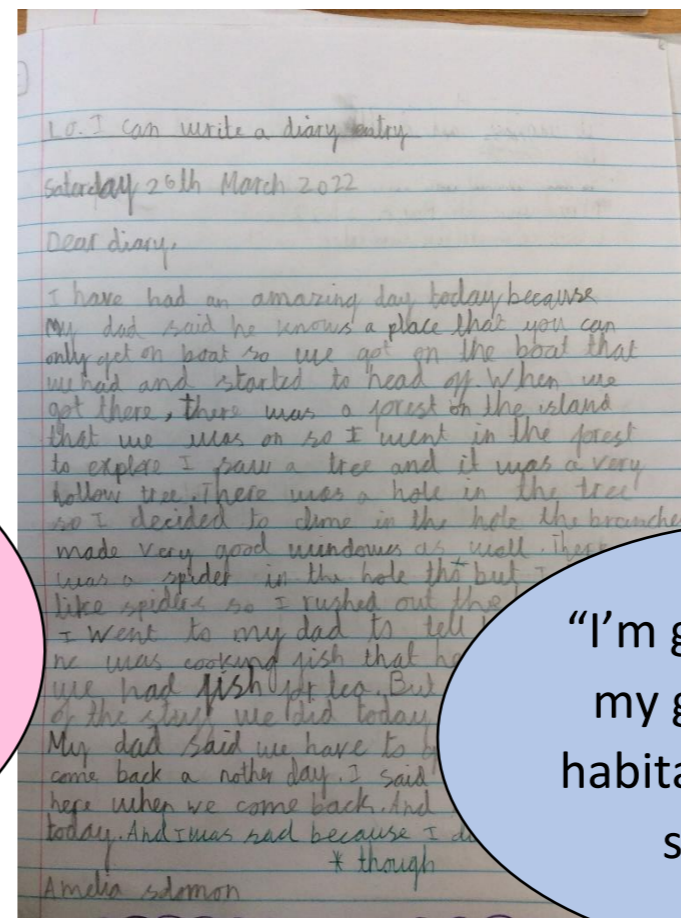 L.O. I can write a diary entry
Saterday 26th March 2022
Dear diary,
I have had an amazing day today because
My dad said he knows a place that you can
only get on boat so we got on the boat that
we had and started to head off. When we
got there, there was a forest on the island
that we was on so I went in the forest
to explore I saw a tree and it was a very
hollow tree. There was a hole in the tree
so I decided to clime in the hole the branches
made very good windows as well. There
was a spider in the hole tho but I
like spiders so I rushed out the
I went to my dad to tell
he was cooking fish that
we had fish for tea. But
of the stuff we did today
My dad said we have to
come back a nother day. I said
here when we come back. And
today. And I was sad because I
* though
Amelia solomon
"I'm g
my g
habita
s